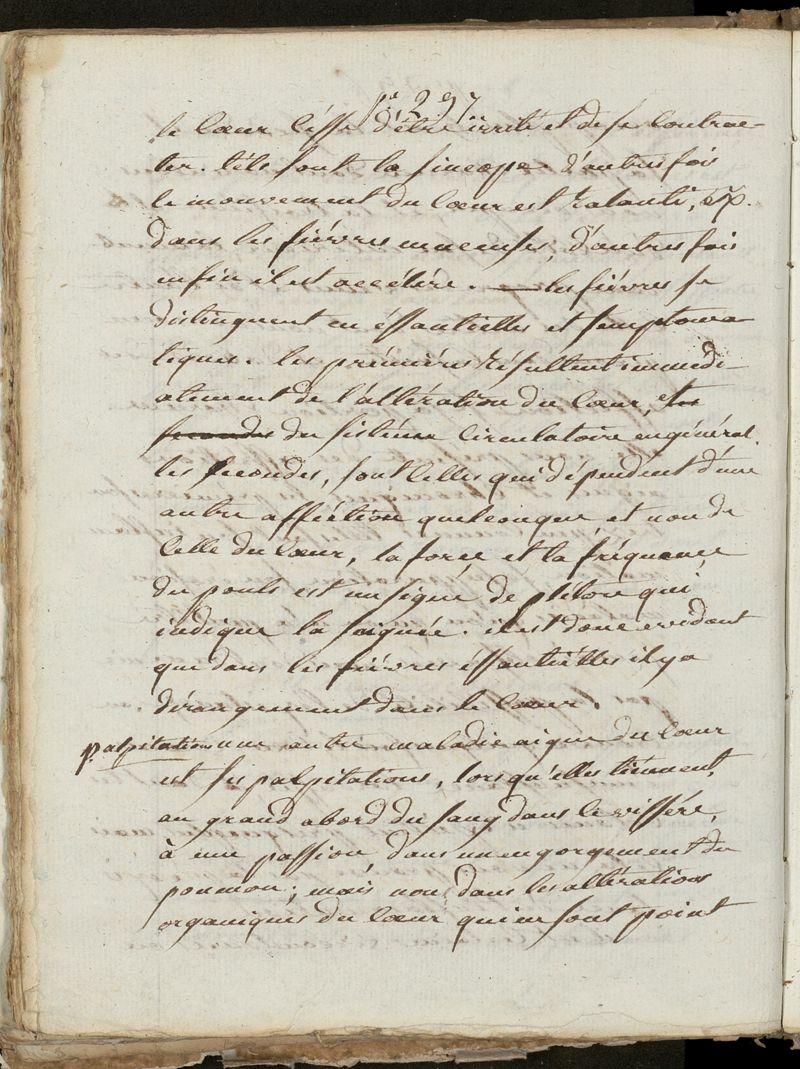 p.e 297
le cœur césse d'être irrité et de se contrac-
ter. tels sont la sincope d'autres fois
le mouvement du cœur est ralenti,
dans les fiévres muceuses, d'autres fois
enfin il est accéléré. — les fiévres se
distinguent en éssantielles et semptoma
tiques. les prémiéres résultent immedi-
atement de l'altération du cœur, et les
secondes du sistéme circulatoire en général.
les secondes, sont celles qui dépendent d'une
autre afféction quelconque, et non de
celle du cœur, la force et la fréquence
du pouls est un signe de plétore qui
indique la saignée. il est donc evident
que dans les fiévres éssantiélles il y a
dérangement dans le cœur.
palpitations une autre maladie aigue du cœur
est ses palpitations, lorsqu'elles tiénnent,
au grand abord du sang dans le vissére,
à une passion, dans un engorgement du
poumon; mais non, dans les altérations
organiques du cœur qui ne sont point